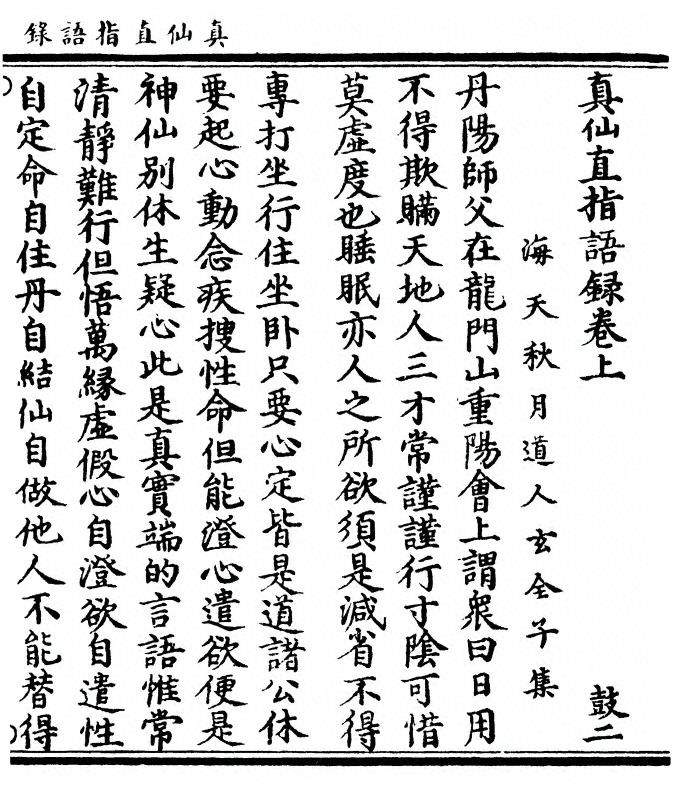 真仙直指語錄
真仙直指語録卷上
鼓二
海天秋月道人玄全子集
丹陽師父在龍門山重陽會上謂衆曰日用
不得欺瞞天地人三才常謹謹行寸陰可惜
莫虛度也睡眠亦人之所欲須是減省不得
專打坐行住坐卧只要心定皆是道諸公休
要起心動念疾搜性命但能澄心遣欲便是
神仙别休生疑心此是真實端的言語惟常
清靜難行但悟萬緣虛假心自澄欲自遣性
自定命自住丹自結仙自做他人不能替得